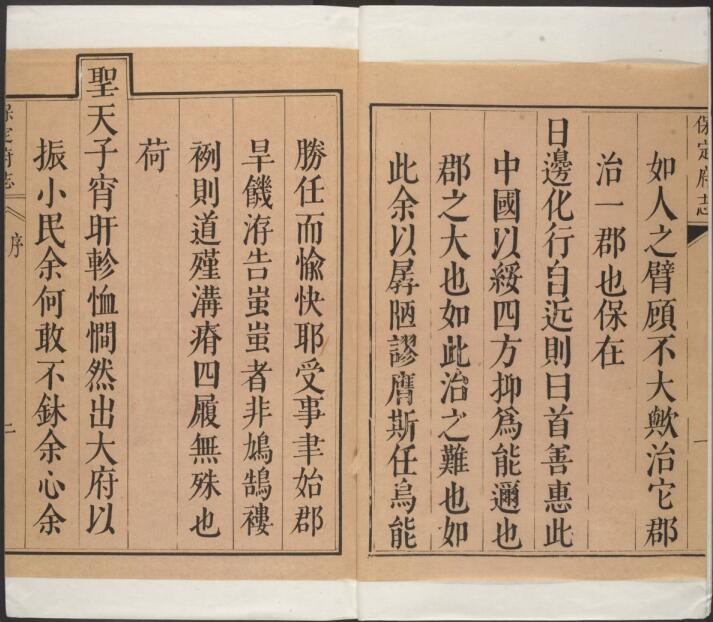 保定府志
一
如人之臂顧不大歟治它郡
治一郡也保在
日邊化行自近則曰首善惠此
中國以綏四方抑爲能邇也
郡之大也如此治之難也如
此余以孱陋謬膺斯任烏能
勝任而愉快耶受事聿始郡
旱饑洊告蚩蚩者非鳩鵠褸
裂則道殣溝瘠四履無殊也
荷
聖天子宵旰軫恤憪然出大府以
振小民余何敢不鉥余心余
保定府志
序
二